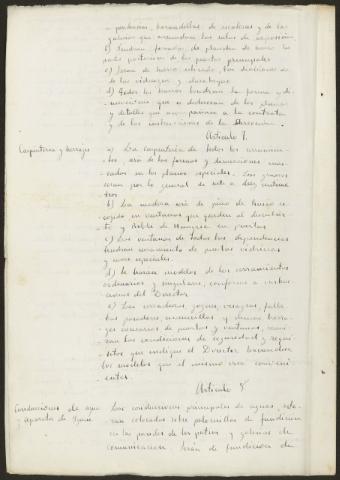 barandillas, de escaleras y de las
galerías que circundan las salas de exposición.
b) Tendrán forrados de plancha de hierro las
partes posteriores de las puertas principales
c) Serán de hierro
de las vidrieras y claraboyas.
d) Todos los hierros tendrán la forma y di-
mensiones que se deduzcan de los planos
y detalles que acompañan a la contrata
y de las instrucciones de la Dirección.
Artículo 7.
Carpintería y herrajes
a) La carpintería de todos los cerramien-
tos, será de las formas y dimensiones mar-
cados en los planos especiales. Los gruesos
serán por lo general de siete a diez centíme-
tros
b) La madera será de pino de
en ventanas que queden al descubier-
to y Roble de Hungría en puertas
c) Las ventanas de todas las dependencias
tendrán cerramiento de puertas vidrieras
y
d) Se harán modelos de los cerramientos
ordinarios y singulares, conforme a instruc-
ciones del Director
e) Las cerraduras, goznes, visagras, falle-
bas, pasadores, manecillas y demás herra-
jes necesarios de puertas y ventanas, reuni-
rán las condiciones de seguridad y requi-
sitos que indique el Director, haciéndose
los modelos que el mismo crea conveni-
entes.
Artículo 8
Conducciones de agua
Aparatos de
Las conducciones principales de aguas, esta-
rán colocadas sobre palomillas de fundición
en las paredes de los patios y galerías de
comunicación. Serán de fundición de